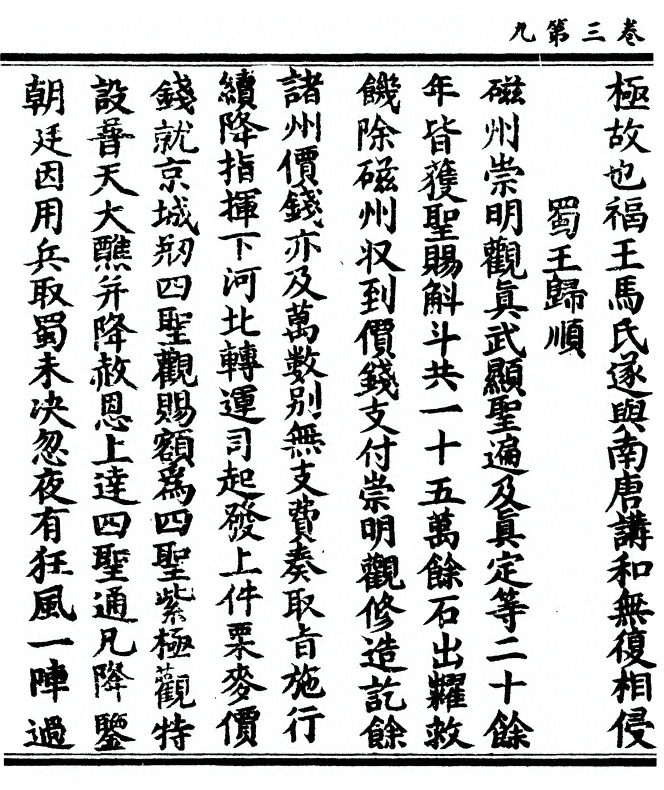 卷三第九
極故也福王馬氏遂與南唐講和無復相侵
蜀王歸順
磁州崇明觀真武顯聖遍及真定等二十餘
年皆獲聖賜斛斗共一十五萬餘石出糶救
饑除磁州収到價錢支付崇明觀修造訖餘
諸州價錢亦及萬數别無支費奏取旨施行
續降指揮下河北轉運司起發上件粟麥價
錢就京城剏四聖觀賜額為四聖紫極觀特
設普天大醮并降赦恩上達四聖通凡降鑒
朝廷因用兵取蜀未决忽夜有狂風一陣過